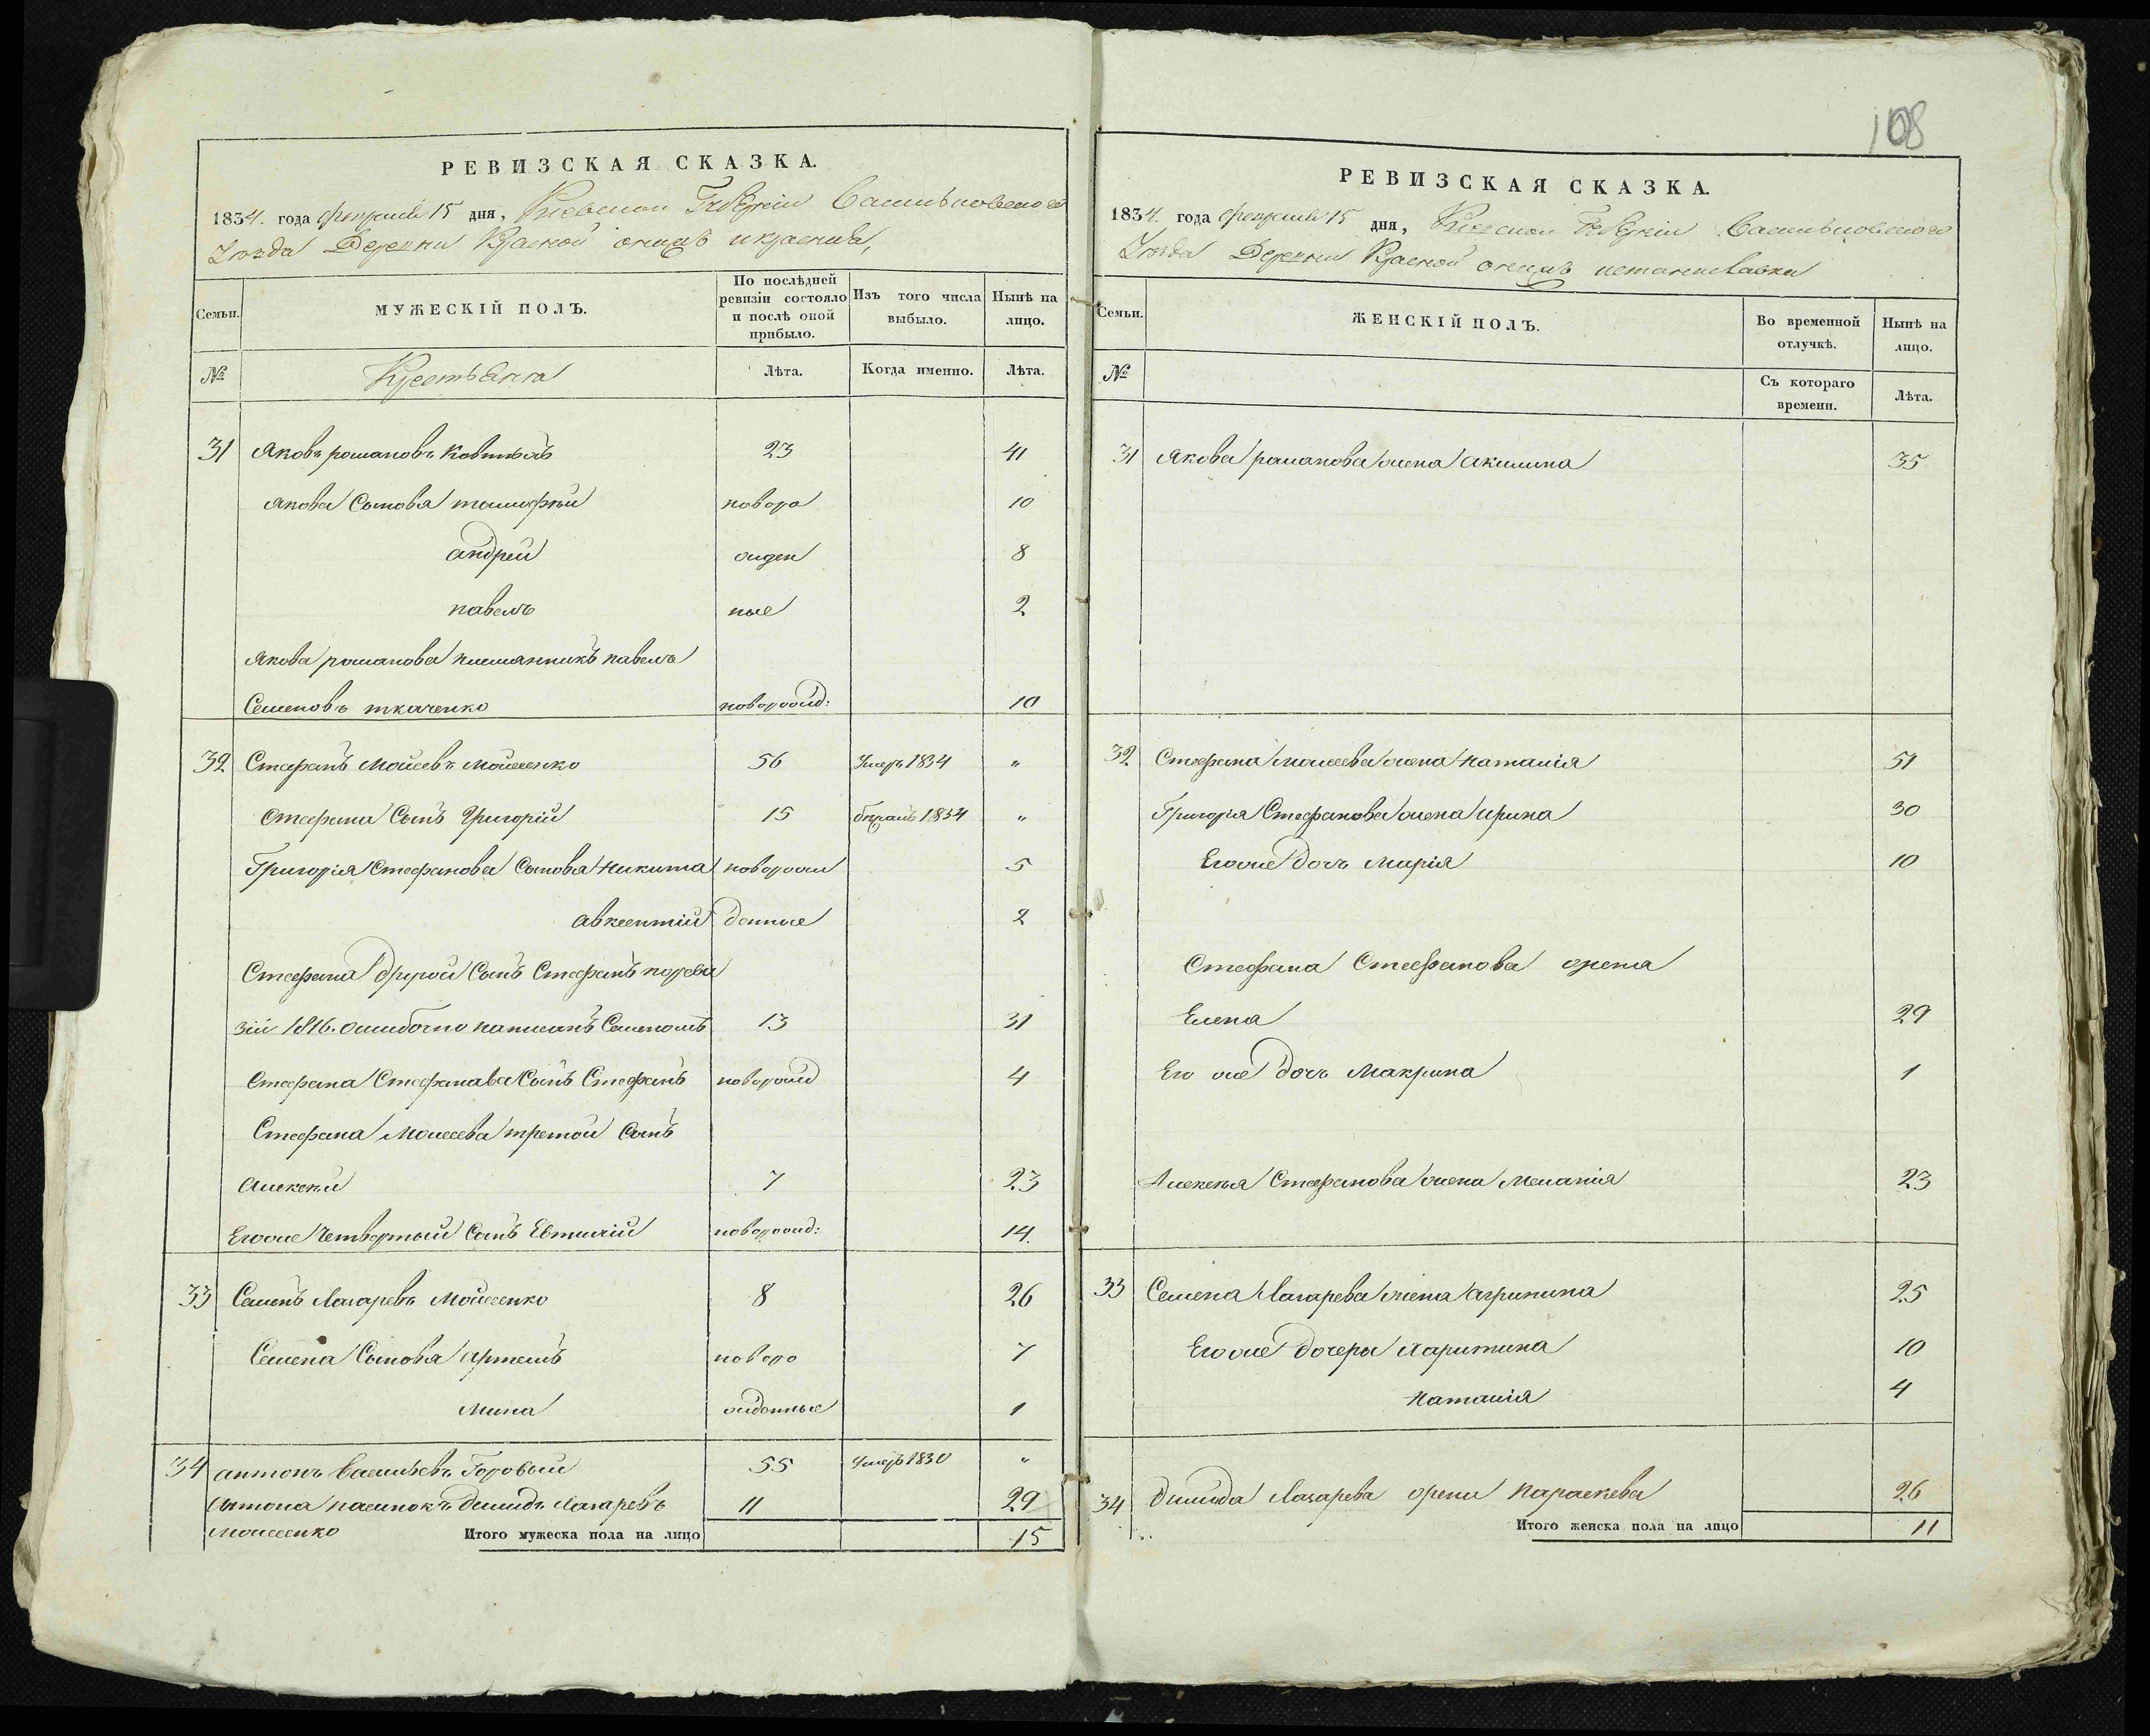 108
РЕВИЗСКАЯ СКАЗКА.
1834. года февраля 15 дня, Киевской Губерніи Васильковского
Уезда Деревни Красной онижъ
Семьи.
МУЖЕСКІЙ ПОЛЪ.
По послѣдней ревизіи состояло и послѣ оной прибыло.
Изъ того числа выбыло.
Нынѣ на лицо.
№
Крестьяна
Лѣта.
Когда именно.
Лѣта.
31 Яковъ романовъ 23 41
Якова Сыновя тимофѣй новоро 10
андрей жден 8
павелъ ные 2
Якова романова племянникъ павелъ
Семеновъ ткаченко поворожд: 10
32 Стефанъ Мойсевъ Мойсеенко 56 Умеръ 1834 "
Стефана Сынъ Григорій 15 1834 "
Григорія Стефанова Сыновя Никита новорож 5
авксентій денные 2
Стефана другой Сынъ Стефанъ порева
зіи 1816. ошибочно написанъ Семеномъ 13 31
Стефана Стефанава Сынъ Стефанъ новорожд 4
Стефана Моисеева третой Сынъ
Алексѣй 7 23
Егоже Четвертый Сынъ Евтихій новорожд: 14.
33 Семенъ Лазаревъ Мойсеенко 8 26
Семена Сыновя Артемъ новоро 7
Мина жденные 1
34 антонъ Васильевъ Горовый 55 Умеръ 1830 "
Антона пасинокъ Дмидъ Лазаревъ 11 29
Моисеенко Итого мужеска пола на лицо 15
РЕВИЗСКАЯ СКАЗКА.
1834. года февраля 15 дня, Киевской Губерніи Васильковского
Уезда Деревни Красной онижъ
Семьи.
ЖЕНСКІЙ ПОЛЪ.
Во временной отлучкѣ.
Нынѣ на лицо.
№
Съ котораго времени.
Лѣта.
31 Якова романова жена Акилина 35
32 Стефана Моисеева жена Наталія 51
Григорія Стефанова жена ирина 30
Егоже дочь Марія 10
Стефана Стефанова жена
Елена 29
Его же дочь Макрина 1
Алексѣя Стефанова жена Меланія 23
33 Семена Лазарева жена агрипина 25
Егоже дочеры Харитина 10
Наталія 4
34 Дмида Лазарева жена Параскева 26
Итого женска пола на лицо 11